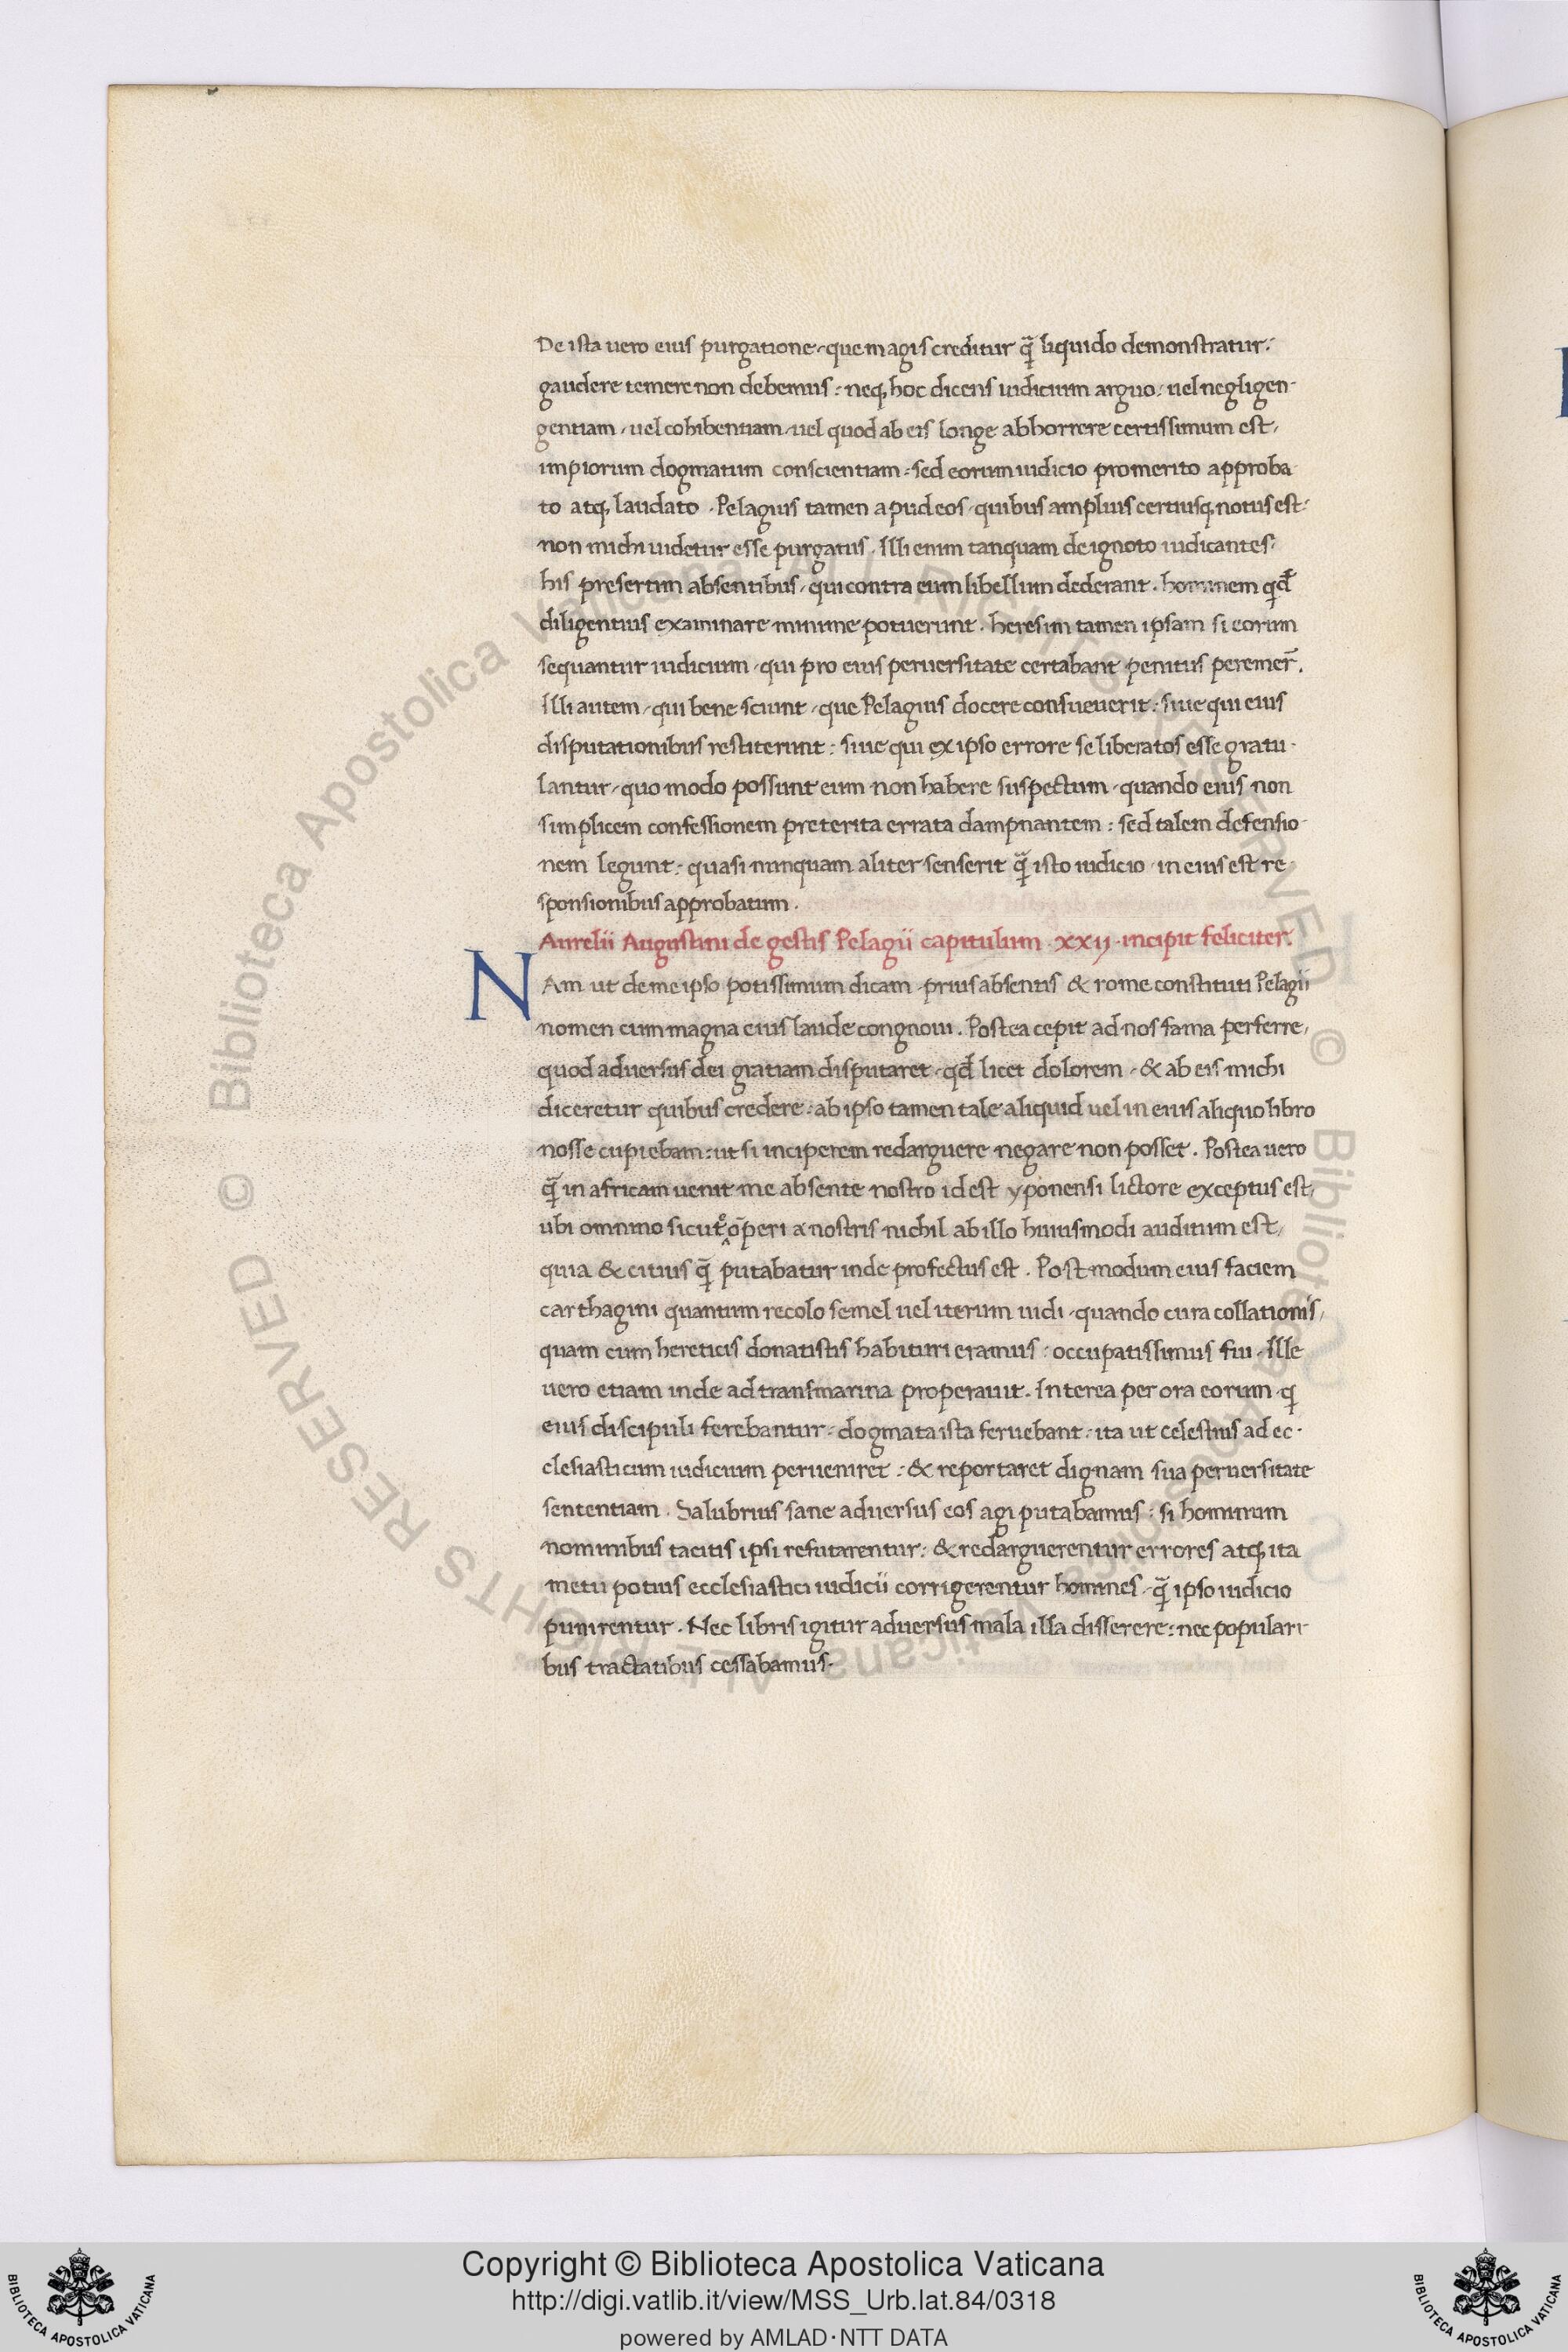 De ista uero eius purgatione, que magis creditur q̃ liquido demonstratur:
gaudere temere non debemus: neq, hoc dicens iudicium arguo, uel negligen-
gentiam, uel cohibentiam, uel quod ab eis longe abhorrere certissimum est,
impiorum dogmatum conscientiam: sed eorum iudicio pro merito approba
to atq, laudato. Pelagius tamen apud eos, quibus amplius certiusq, notus est:
non michi uidetur esse purgatus. Illi enim tanquam de ignoto iudicantes,
his presertim absentibus, qui contra eum libellum dederant. hominem qđ
diligentius examinare minime potuerunt. heresim tamen ipsam si eorum
sequantur iudicium, qui pro eius peruersitate certabant penitus peremer̃.
Illi autem, qui bene sciunt, que Pelagius docere consueuerit: siue qui eius
disputationibus restiterunt: siue qui ex ipso errore se liberatos esse gratu-
lantur, quo modo possunt eum non habere suspectum, quando eius non
simplicem confessionem preterita errata dampnantem: sed talem defensio-
nem legunt: quasi nunquam aliter senserit q̃ isto iudicio in eius est re
sponsionibus approbatum.
Aurelii Augustini de gestis Pelagii capitulum .xxij. incipit feliciter.
NAm ut de me ipso potissimum dicam prius absentis & rome constituti Pelagii
nomen cum magna eius laude congnoui. Postea cepit ad nos fama perferre,
quod aduersus dei gratiam disputaret, qđ licet dolorem, & ab eis michi
diceretur quibus credere: ab ipso tamen tale aliquid uel in eius aliquo libro
nosse cupiebam: ut si inciperem redarguere negare non posset. Postea uero
q̃ in africam uenit me absente nostro id est yponensi lictore exceptus est,
ubi omnino sicut õperi a nostris nichil ab illo huiusmodi auditum est,
quia & citius q̃ putabatur inde profectus est. Post modum eius faciem
carthagini quantum recolo semel uel iterum uidi, quando cura collationis,
quam cum hereticis donatistis habituri eramus: occupatissimus fui, Ille
uero etiam inde ad transmarina properauit. Interea per ora eorum q
eius discipuli ferebantur, dogmata ista feruebant, ita ut celestius ad ec-
clesiasticum iudicium perueniret: & reportaret dignam sua peruersitate
sententiam. Salubrius sane aduersus eos agi putabamus: si hominum
nominibus tacitis ipsi refutarentur: & redarguerentur errores atq, ita
metu potius ecclesiastici iudicii corrigerentur homines, q̃ ipso iudicio
punirentur. Nec libris igitur aduersus mala illa disserere: nec populari-
bus tractatibus cessabamus.
© Biblioteca Apostolica Vaticana ALL RIGHTS RESERVED © Biblioteca Apostolica Vaticana ALL RIGHTS RESERVED
Copyright © Biblioteca Apostolica Vaticana
http://digi.vatlib.it/view/MSS_Urb.lat.84/0318
powered by AMLAD·NTT DATA
BIBLIOTECA APOSTOLICA VATICANA
BIBLIOTECA APOSTOLICA VATICANA